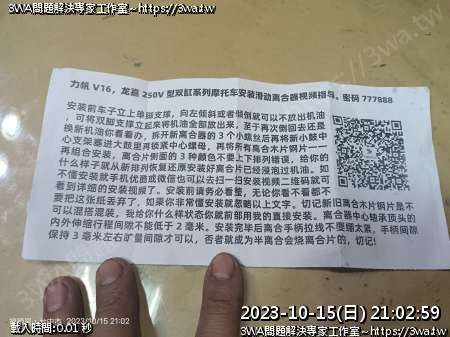 3WA問題解決專家工作室~https://3wa.tw
3WA問題解決專家工作室~https://3wa.tw
力帆 V16，龙嘉 250V 型双缸系列摩托车安装滑动离合器视频指导。密码 777888
安装前车子立上单脚支撑，向左倾斜或者倾倒就可以不放出机油
，可将双脚支撑立起来将机油全部放出来，至于再次倒回去还是
换新机油你看着办，拆开新离合器的 3 个小螺丝后再将新小鼓中
心支架器进大鼓里再锁紧中心螺母，再将所有离合木片钢片一一
再组合安装，离合片侧面的 3 种颜色不要上下排列错误，给你的
什么样子就从新排列恢复还原安装好离合片已经浸泡过机油。如
不懂安装就手机优质或微信也可以去扫一扫安装视频二维码就可
看到详细的安装视频了。安装前请务必看懂，无论你看不看都不
要把这张纸丢弃了，如果你非常懂安装就忽略以上文字。切记新旧离合木片钢片是不
可以混搭混装，我给你什么样状态你就前部用我的直接安装。离合器中心轴承顶头的
内外伸缩行程间隙不能低于 2 毫米。安装完毕后离合手柄拉线不要绷太紧，手柄间隙
保持 3 毫米左右旷量间隙才可以，否者就成为半离合会烧离合片的，切记!
2023/10/15 21:02
2023-10-15(日) 21:02:59
載入時間:0.01 秒
3WA問題解決專家工作室~https://3wa.tw
3WA問題解決專家工作室~https://3wa.tw